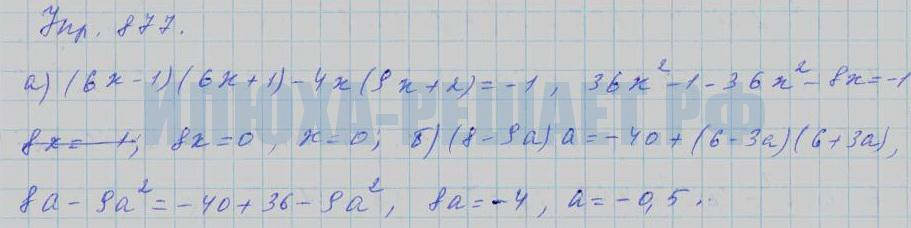 Упр. 877.
а) (6x-1)(6x+1)-4x(9x+2)=-1, 36x²-1-36x²-8x=-1
8x=1; 8x=0, x=0; б) (8-9a)a=-40+(6-3a)(6+3a),
8a-9a²=-40+36-9a², 8a=-4, a=-0,5.
ИЛЮХА-РЕШАЕТ.РФ